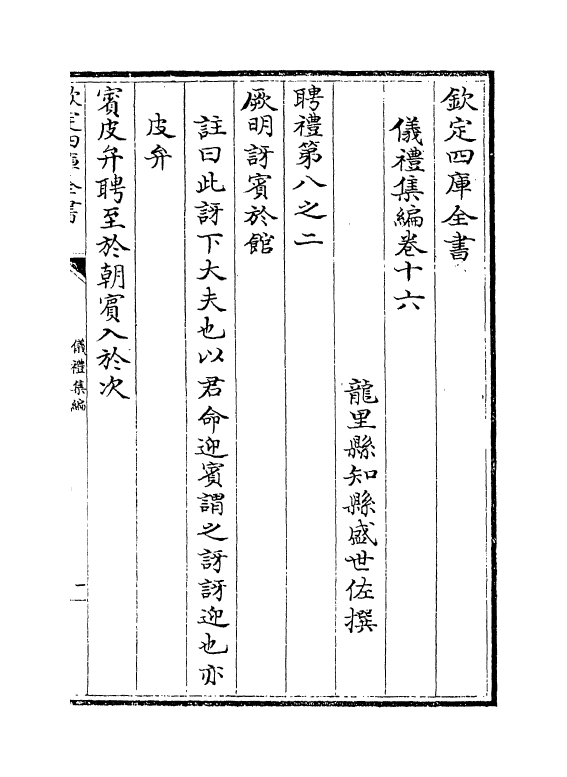 欽定四庫全書
儀禮集編卷十六
龍里縣知縣盛世佐撰
聘禮第八之二
厥明訝賓於館
註曰此訝下大夫也以君命迎賓謂之訝訝迎也亦
皮弁
賓皮弁聘至於朝賓入於次
欽定四庫全書
儀禮集編